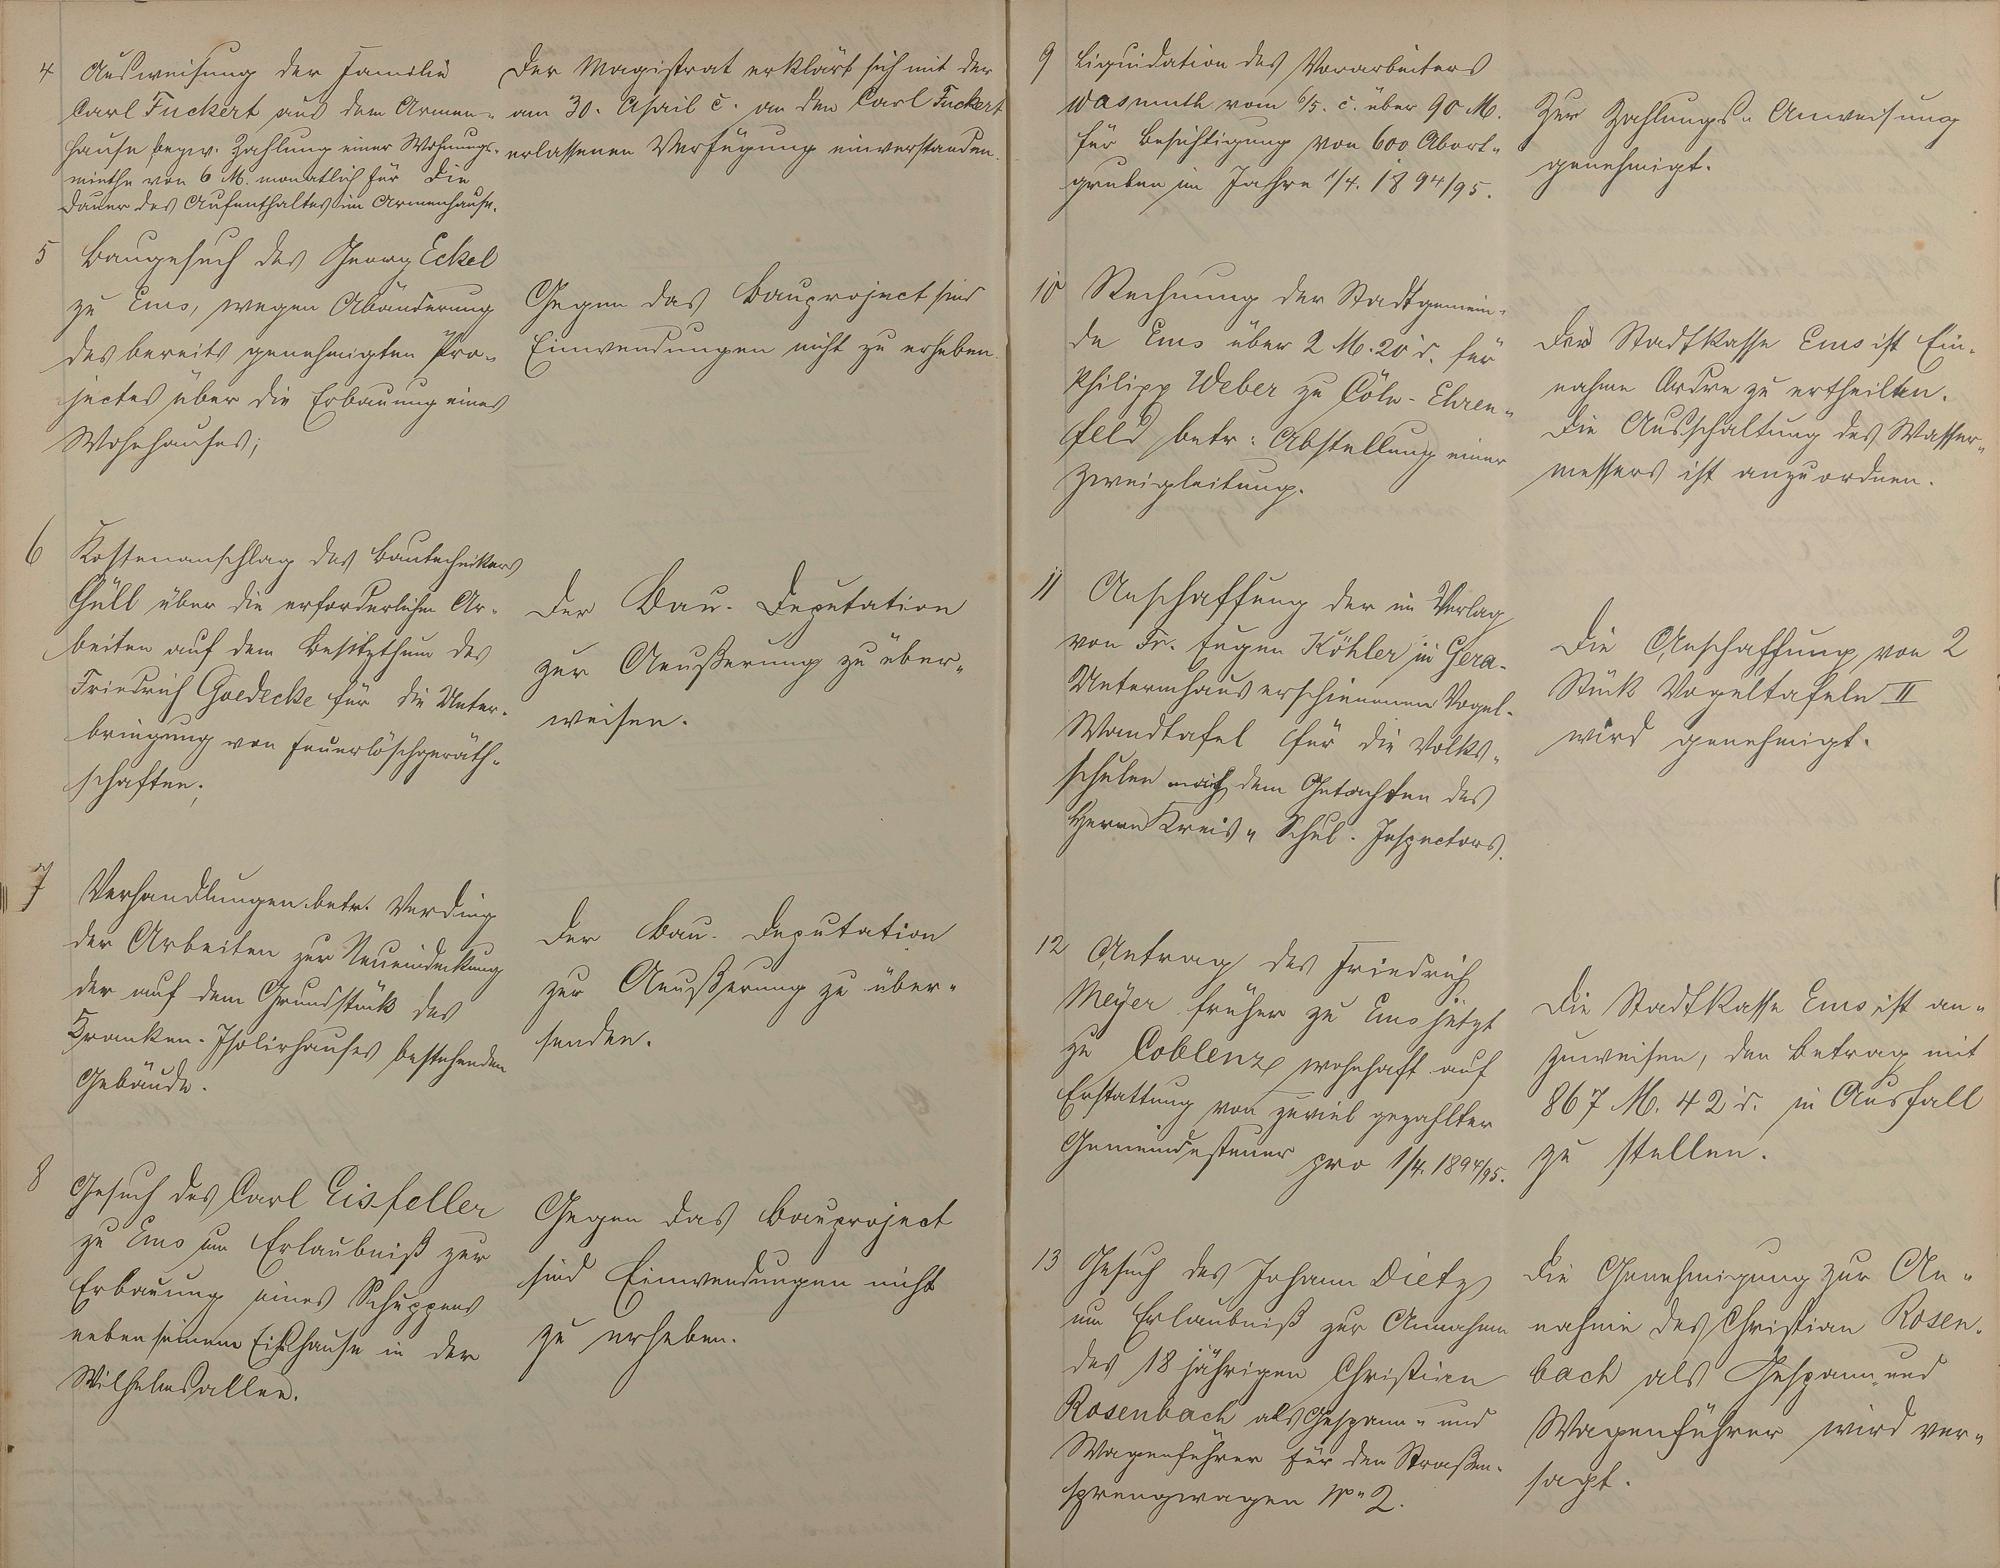 4 Ausweisung der Familie
Carl Fuckert aus dem Armen-
hause bezw. Zahlung einer Wohnungs-
miethe von 6 M. monatlich für die
Dauer des Aufenthaltes im Armenhause.
Der Magistrat erklärt sich mit der
am 30. April c. an den Carl Fuckert
erlassenen Verfügung einverstanden.
5 Baugesuch des Georg Eckel
zu Ems, wegen Abänderung
des bereits genehmigten Pro-
jectes über die Erbauung eines
Wohnhauses;
Gegen das Bauproject sind
Einwendungen nicht zu erheben.
6 Kostenanschlag des Bautechnikers
Güll über die erforderlichen Ar-
beiten auf dem Besitzthum des
Friedrich Goedecke für die Unter-
bringung von Feuerlöschgeräth-
schaften.
Der Bau-Deputation
zur Aeußerung zu über-
weisen.
7 Verhandlungen betr. Verding
der Arbeiten zur Neueindeckung
der auf dem Grundstück des
Kranken-Isolirhauses bestehenden
Gebäude.
Der Bau-Deputation
zur Aeußerung zu über-
senden.
8 Gesuch des Carl Eisfeller
zu Ems um Erlaubniß zur
Erbauung eines Schuppens
neben seinem Eishause in der
Wilhelmsallee.
Gegen das Bauproject
sind Einwendungen nicht
zu erheben.
9 Liquidation des Vorarbeiters
Wasmuth vom 6/5. c. über 90 M.
für Besichtigung von 600 Abort-
gruben im Jahre 1/4. 1894/95.
Zur Zahlungs-Anweisung
genehmigt.
10 Rechnung der Stadtgemein-
de Ems über 2 M. 20 d. für
Philipp Weber zu Cöln-Ehren-
feld betr: Abstellung einer
Zweigleitung.
Der Stadtkasse Ems ist Ein-
nahme Ordre zu ertheilen.
Die Ausschaltung des Wasser-
messers ist anzuordnen.
11 Anschaffung der im Verlag
von Fr. Eugen Köhler in Gera-
Untermhaus erschienenen Vogel-
Wandtafel für die Volks-
schulen nach dem Gutachten des
Herrn Kreis-Schul-Inspectors.
Die Anschaffung von 2
Stück Vogeltafeln II
wird genehmigt.
12 Antrag des Friedrich
Meyer früher zu Ems jetzt
zu Coblenz wohnhaft auf
Erstattung von zuviel gezahlter
Gemeindesteuer pro 1/4. 1894/95.
Die Stadtkasse Ems ist an-
zuweisen, den Betrag mit
867 M. 42 d. in Ausfall
zu stellen.
13 Gesuch des Johann Dietz
um Erlaubniß zur Annahme
des 18 jährigen Christian
Rosenbach als Gespann- und
Wagenführer für den Straßen-
sprengwagen No 2.
Die Genehmigung zur An-
nahme des Christian Rosen-
bach als Gespann- und
Wagenführer wird ver-
sagt.